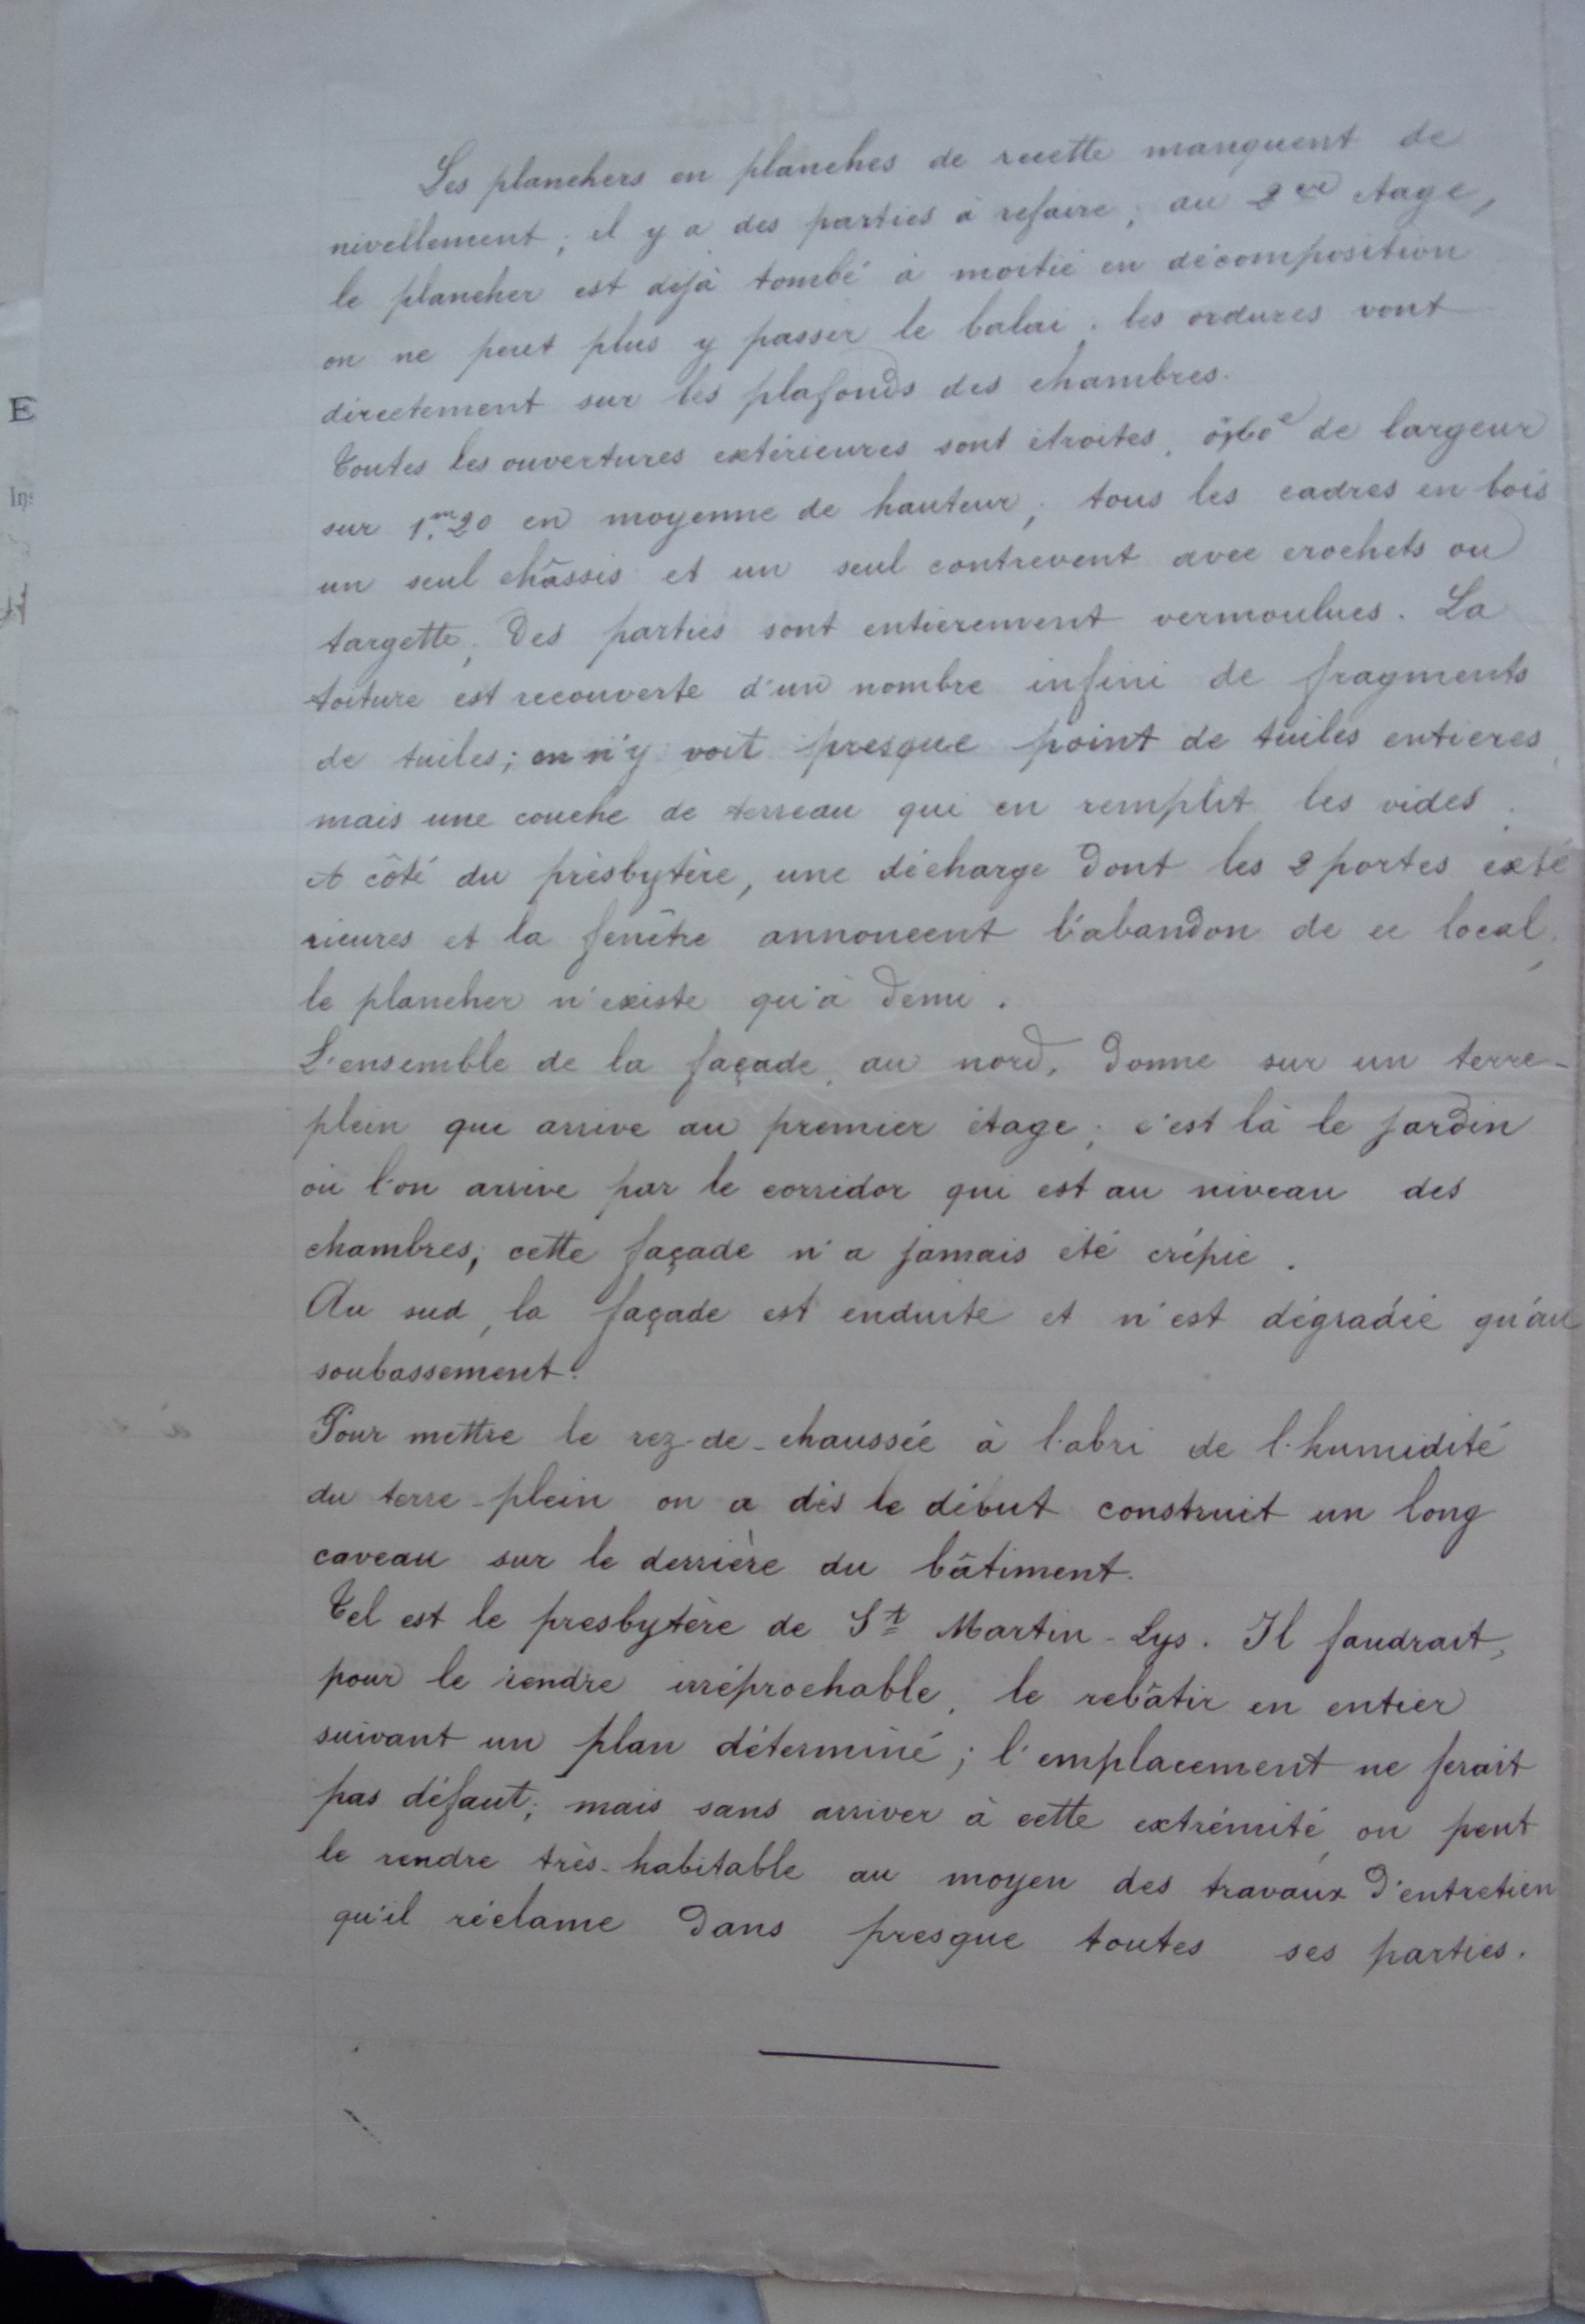 Les planchers en planches de recette manquent de
nivellement; il y a des parties à refaire; au 2me étage,
le plancher est déjà tombé à moitié en décomposition
on ne peut plus y passer le balai. les ordures vont
directement sur les plafonds des chambres.
Toutes les ouvertures extérieures sont étroites, de largeur
sur 1.m20 en moyenne de hauteur; tous les cadres en bois
un seul châssis et un seul contrevent avec crochets ou
targette; Des parties sont entièrement vermoulues. La
toiture est recouverte d'un nombre infini de fragments
de tuiles; on n'y voit presque point de tuiles entières,
mais une couche de terreau qui en remplit les vides.
A côté du présbytère, une décharge dont les 2 portes exté
rieures et la fenêtre annoncent l'abandon de ce local,
le plancher n'existe qu'à demi.
L'ensemble de la façade, au nord, donne sur un terre-
plein qui arrive au premier étage; c'est là le jardin
où l'on arrive par le corridor qui est au niveau des
chambres; cette façade n'a jamais été crépie.
Au sud, la façade est enduite et n'est dégradée qu'au
soubassement.
Pour mettre le rez-de-chaussée à l'abri de l'humidité
du terre-plein on a dès le début construit un long
caveau sur le derrière du bâtiment.
Tel est le presbytère de St Martin-Lys. Il faudrait,
pour le rendre irréprochable, le rebâtir en entier
suivant un plan déterminé; l'emplacement ne ferait
pas défaut; mais sans arriver à cette extrémité, on peut
le rendre très-habitable au moyen des travaux d'entretien
qu'il réclame dans presque toutes ses parties.
E